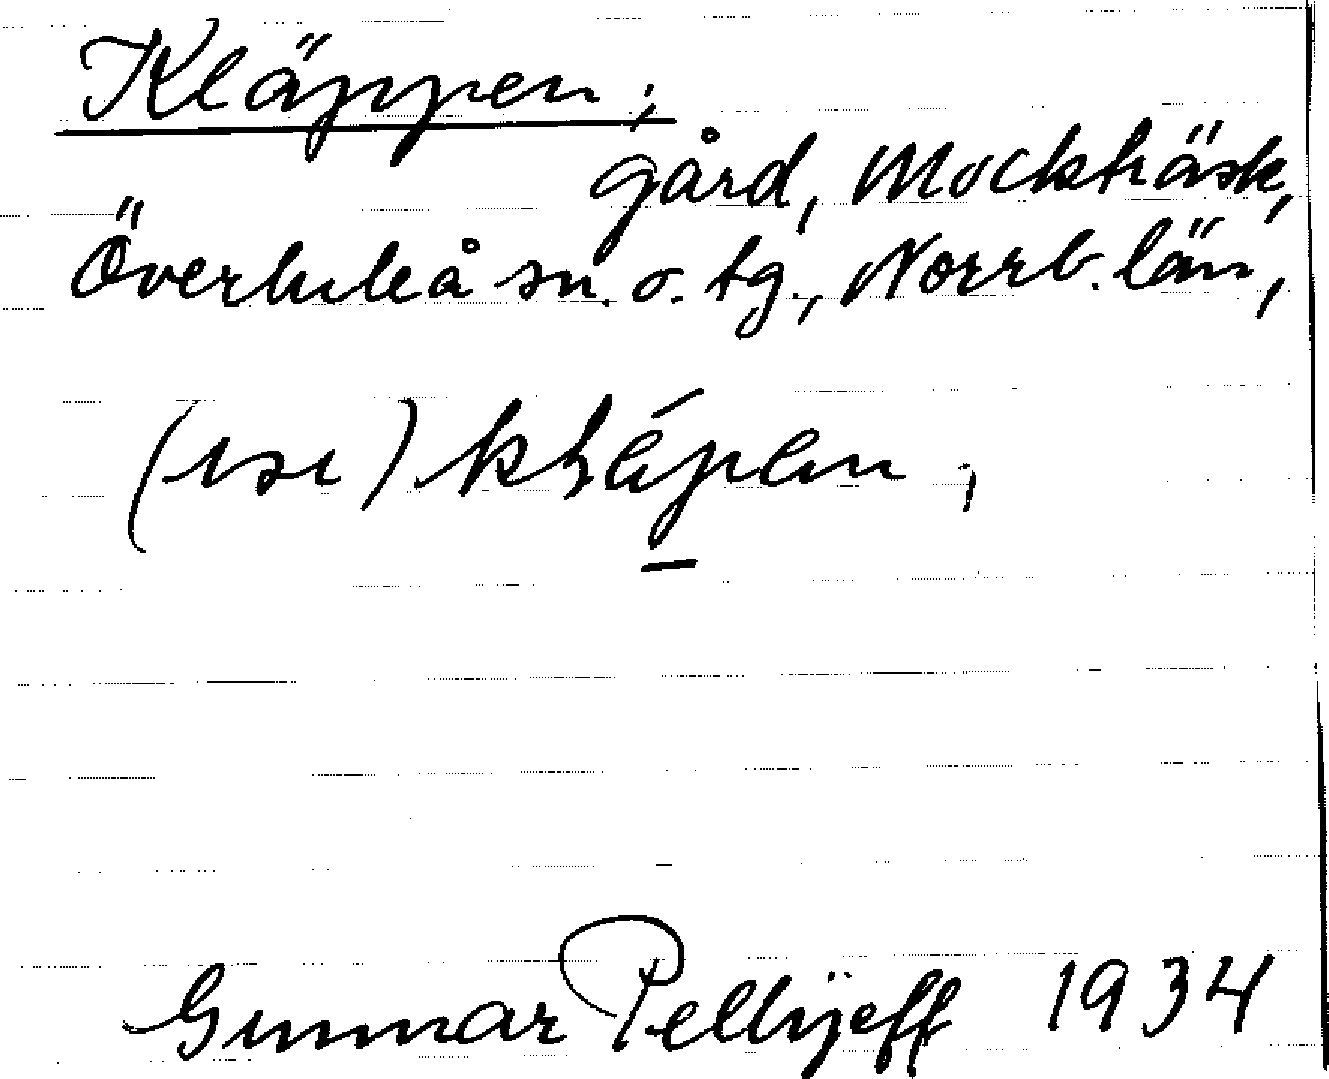 Kläppen;
gård, Mockträsk,
Överluleå sn. o. tg., Norrb. län,
(ɩsɩ) klæ̀pen,
Gunnar Pellijeff 1934